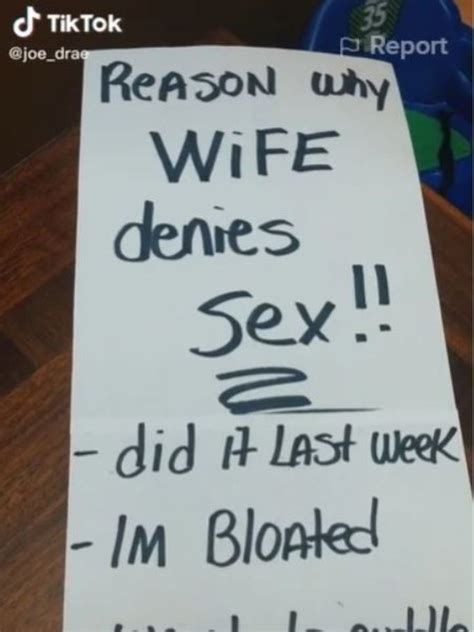 TikTok
@joe_drae
35
Report
REASON why
WiFE
denies
Sex!!
- did it LASt week
- IM Bloated